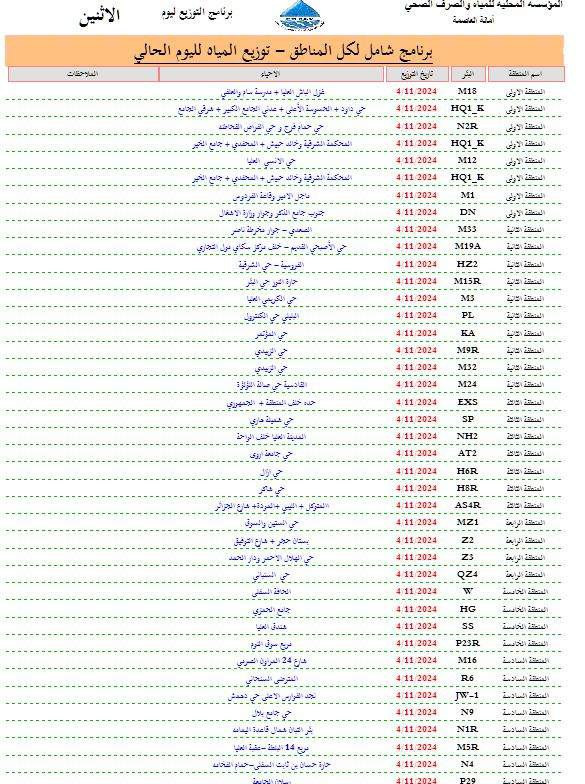 المؤسسة المحلية للمياه والصرف الصحي
أمانة العاصمة
برنامج التوزيع ليوم
الاثنين
برنامج شامل لكل المناطق – توزيع المياه لليوم الحالي
اسم المنطقة البئر تاريخ التوزيع الاحياء الملاحظات
المنطقة الاولى M18 4/11/2024 غزل الباش العليا + مدرسة سام والعلفي
المنطقة الاولى HQ1_K 4/11/2024 حي داود + الخسوسة الأعلى + عدني الجامع الكبير + شرقي الجامع
المنطقة الاولى N2R 4/11/2024 حي حمام فرج و حي القزالي
المنطقة الاولى HQ1_K 4/11/2024 المحكمة الشرقية وخالد حبيش + المحفدي + جامع الخير
المنطقة الاولى M12 4/11/2024 حي الانسي العليا
المنطقة الاولى HQ1_K 4/11/2024 المحكمة الشرقية وخالد حبيش + المحفدي + جامع الخير
المنطقة الاولى M1 4/11/2024 ماجل الامير وقاعة الفردوس
المنطقة الاولى DN 4/11/2024 جنوب جامع الذكر وجوار وزارة الاشغال
المنطقة الثانية M33 4/11/2024 الصعدي – جوار مخرطة ناصر
المنطقة الثانية M19A 4/11/2024 حي الأصبحي القديم – خلف مركز سكاي مول التجاري
المنطقة الثانية HZ2 4/11/2024 الفروسية – حي الشرقية
المنطقة الثانية M15R 4/11/2024 حارة النور حي البئر
المنطقة الثانية M3 4/11/2024 حي الكريمي العليا
المنطقة الثانية PL 4/11/2024 البليلي حي الكنترول
المنطقة الثانية KA 4/11/2024 حي المؤتمر
المنطقة الثانية M9R 4/11/2024 حي الزبيدي
المنطقة الثانية M32 4/11/2024 حي الزبيدي
المنطقة الثانية M24 4/11/2024 القادسية حي صالة اللؤلؤة
المنطقة الثالثة EXS 4/11/2024 حده خلف المنطقة + الجمهوري
المنطقة الثالثة SP 4/11/2024 حي شميلة هاري
المنطقة الثالثة NH2 4/11/2024 المدينة العليا خلف الواحة
المنطقة الثالثة AT2 4/11/2024 حي جامعة اروى
المنطقة الثالثة H6R 4/11/2024 حي ازال
المنطقة الثالثة H8R 4/11/2024 حي شاكر
المنطقة الثالثة AS4R 4/11/2024 المتوكل + الليبي +المودة+ شارع الجزائر
المنطقة الرابعة MZ1 4/11/2024 حي الستين والسوق
المنطقة الرابعة Z2 4/11/2024 بستان حجر + شارع التوفيق
المنطقة الرابعة Z3 4/11/2024 حي الهلال الاحمر ودار الحمد
المنطقة الرابعة QZ4 4/11/2024 حي السنباني
المنطقة الخامسة W 4/11/2024 الحافة السفلى
المنطقة الخامسة HG 4/11/2024 جامع الحمزي
المنطقة الخامسة SS 4/11/2024 هندق العليا
المنطقة الخامسة P23R 4/11/2024 مربع سوق الثوم
المنطقة السادسة M16 4/11/2024 شارع 24 المراون الصرمي
المنطقة السادسة R6 4/11/2024 المترضى السنحاني
المنطقة السادسة JW-1 4/11/2024 نجد الفوارس الاعلى حي دهمش
المنطقة السادسة N9 4/11/2024 حي جامع بلال
المنطقة السادسة N1R 4/11/2024 بئر اللبان شمال قاعدة اليمامه
المنطقة السادسة M5R 4/11/2024 مربع 14 البلطة –عقبة العليا
المنطقة السادسة N4 4/11/2024 حارة حسان بن ثابت السفلى–حمام الفخامه
المنطقة السادسة P29 4/11/2024 رسلان الجامعة